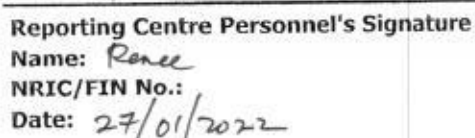 Reporting Centre Personnel's Signature
Name: Renee
NRIC/FIN No.:
Date: 27/01/2022